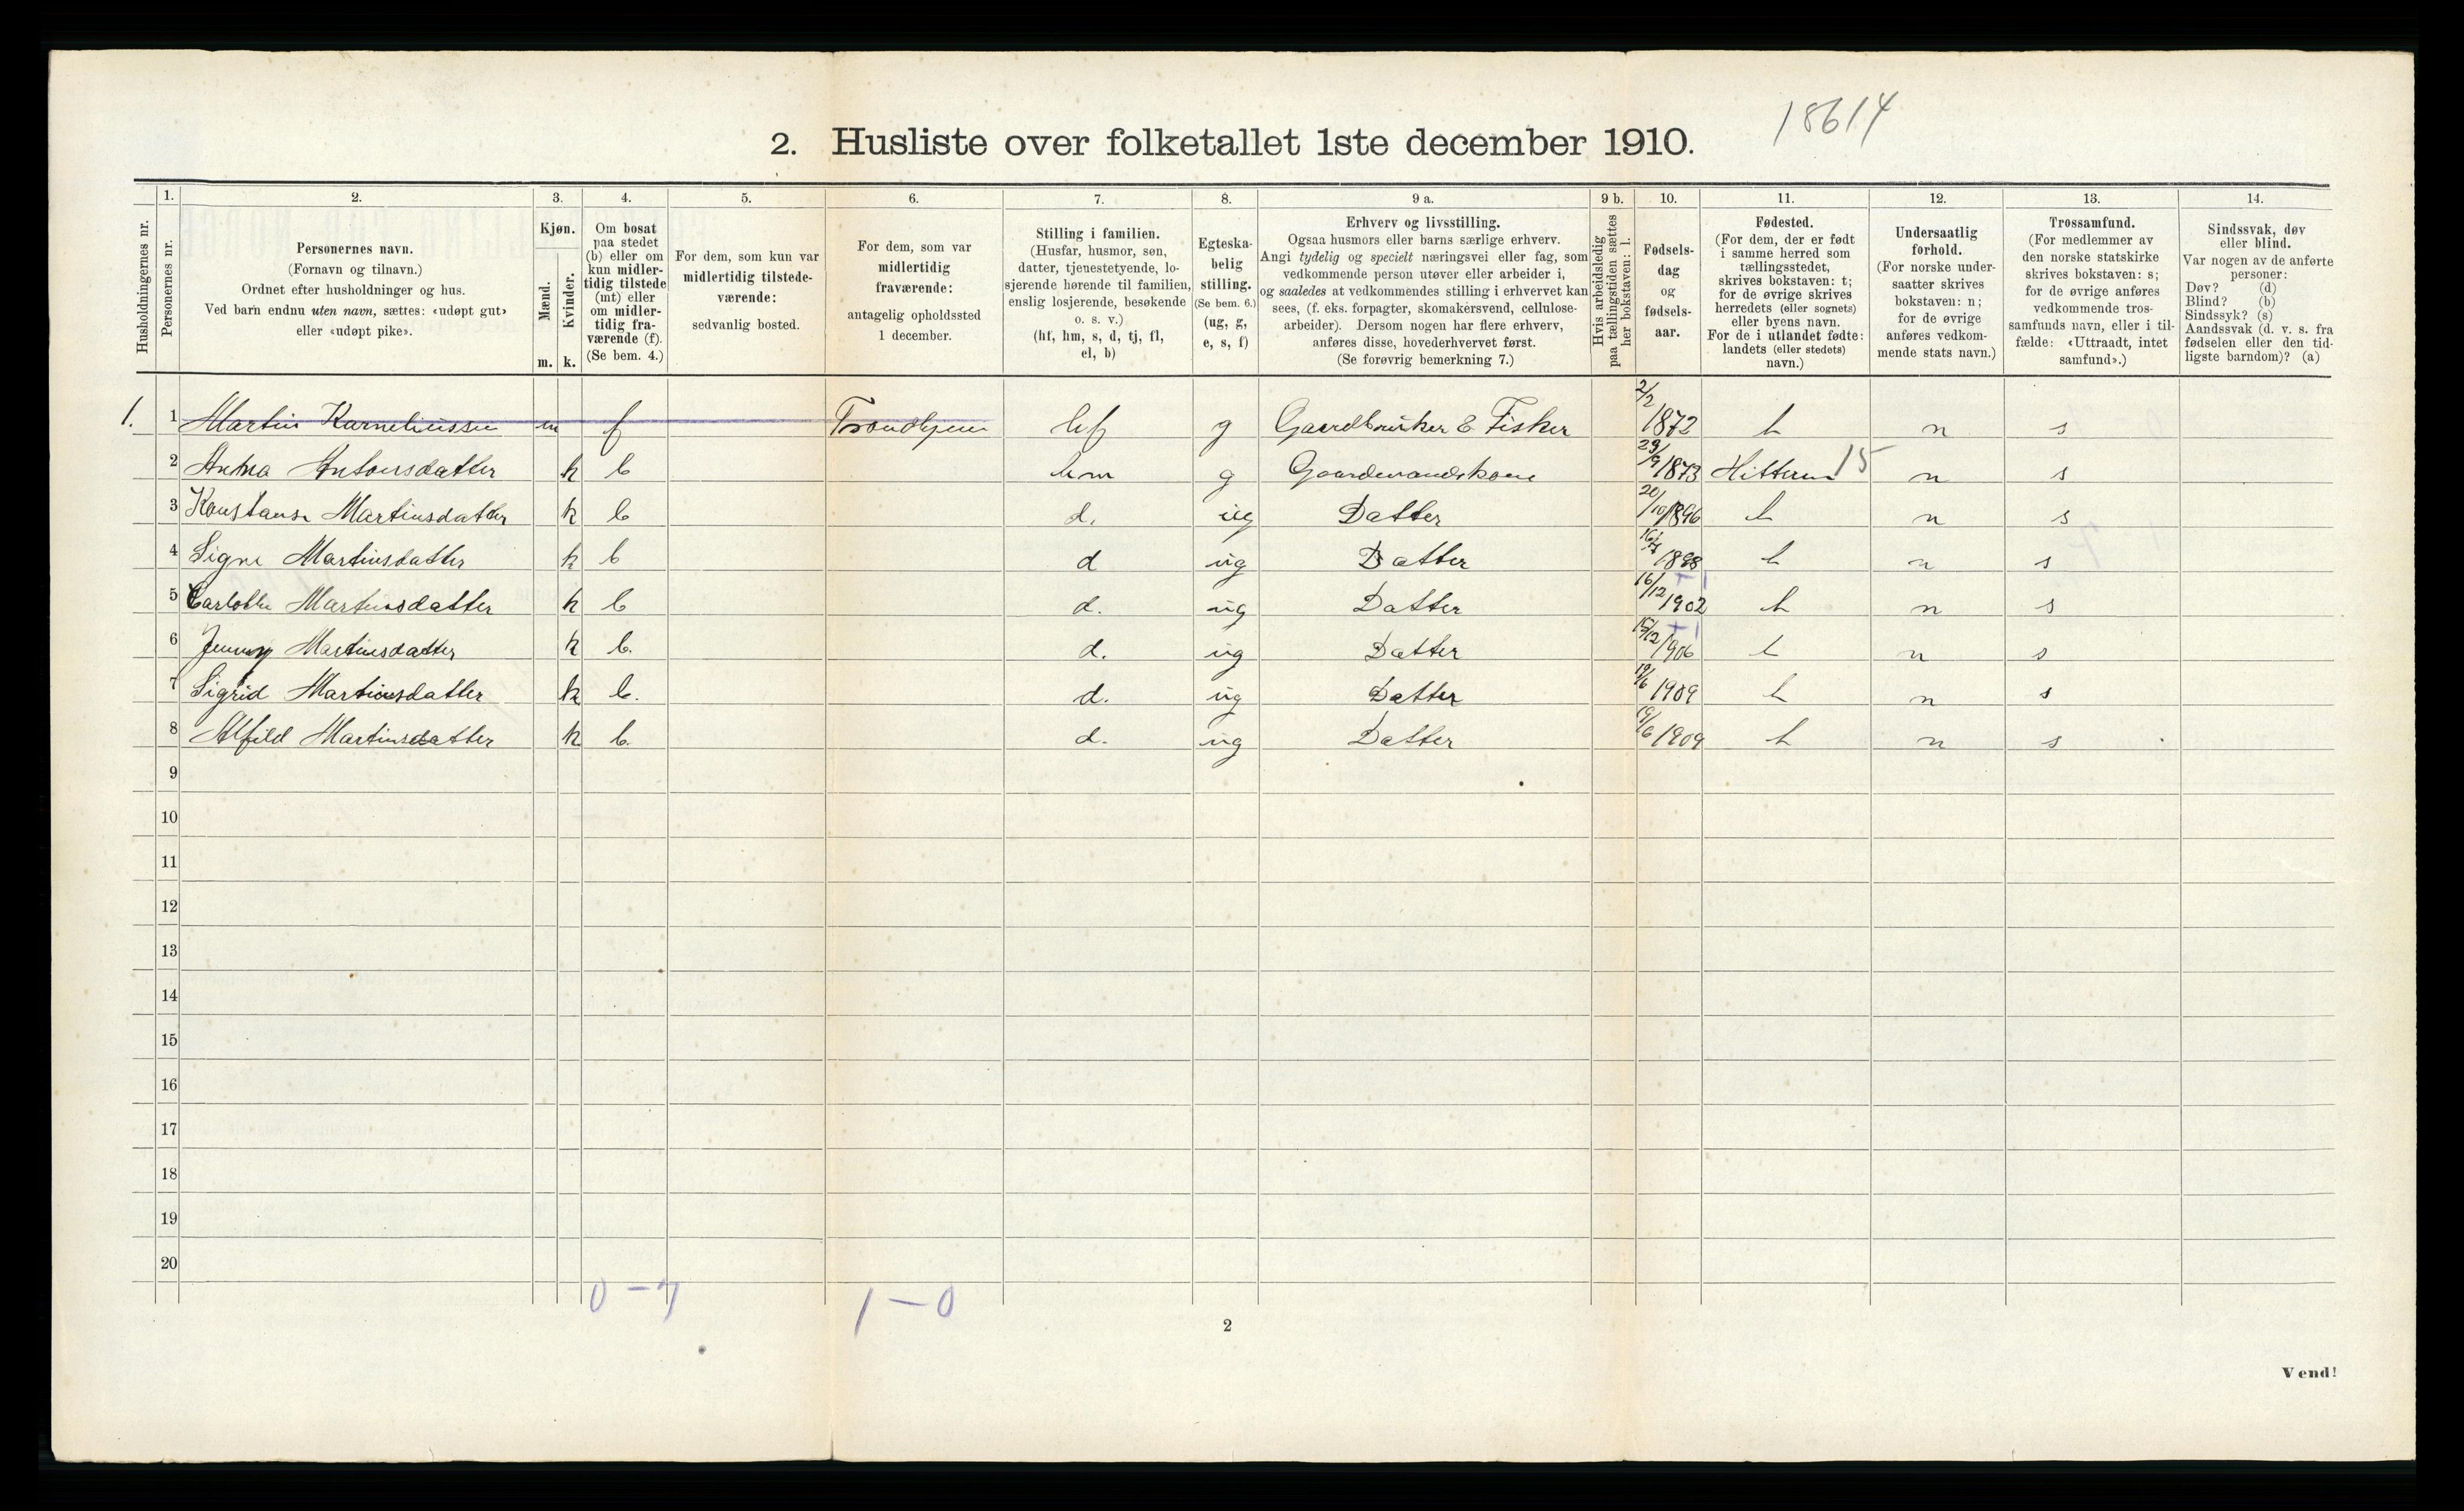 18614
2. Husliste over folketallet 1ste december 1910.
Husholdningernes nr.
1.
Personernes nr.
2.
Personernes navn.
(Fornavn og tilnavn.)
Ordnet efter husholdninger og hus.
Ved barn endnu uten navn, sættes: «udøpt gut»
eller «udøpt pike».
3.
Kjøn.
Mænd.
Kvinder.
m. k.
4.
Om bosat
paa stedet
(b) eller om
kun midler-
tidig tilstede
(mt) eller
om midler-
tidig fra-
værende (f).
(Se bem. 4.)
5.
For dem, som kun var
midlertidig tilstede-
værende:
sedvanlig bosted.
6.
For dem, som var
midlertidig
fraværende:
antagelig opholdssted
1 december.
7.
Stilling i familien.
(Husfar, husmor, søn,
datter, tjenestetyende, lo-
sjerende hørende til familien,
enslig losjerende, besøkende
o. s. v.)
(hf, hm, s, d, tj, fl,
el, b)
8.
Egteska-
belig
stilling.
(Se bem. 6.)
(ug, g,
e, s, f)
9 a.
Erhverv og livsstilling.
Ogsaa husmors eller barns særlige erhverv.
Angi tydelig og specielt næringsvei eller fag, som
vedkommende person utøver eller arbeider i,
og saaledes at vedkommendes stilling i erhvervet kan
sees, (f. eks. forpagter, skomakersvend, cellulose-
arbeider). Dersom nogen har flere erhverv,
anføres disse, hovederhvervet først.
(Se forøvrig bemerkning 7.)
9 b.
Hvis arbeidsledig
paa tællingstiden sættes
her bokstaven: l.
10.
Fødsels-
dag
og
fødsels-
aar.
11.
Fødested.
(For dem, der er født
i samme herred som
tællingsstedet,
skrives bokstaven: t;
for de øvrige skrives
herredets (eller sognets)
eller byens navn.
For de i utlandet fødte:
landets (eller stedets)
navn.)
12.
Undersaatlig
forhold.
(For norske under-
saatter skrives
bokstaven: n;
for de øvrige
anføres vedkom-
mende stats navn.)
13.
Trossamfund.
(For medlemmer av
den norske statskirke
skrives bokstaven: s;
for de øvrige anføres
vedkommende tros-
samfunds navn, eller i til-
fælde: «Uttraadt, intet
samfund».)
14.
Sindssvak, døv
eller blind.
Var nogen av de anførte
personer:
Døv? (d)
Blind? (b)
Sindssyk? (s)
Aandssvak (d. v. s. fra
fødselen eller den tid-
ligste barndom)? (a)
1. 1 Martin Karneliussen m f Trondhjem hf g Gaardbruker & Fisker 2/2 1872 t n s
2 Anna Antonsdatter k b hm g Gaardmandskone 29/9 1873 Hitteren 15 n s
3 Konstanse Martinsdatter k b d. ug Datter 20/10 1896 t n s
4 Signe Martinsdatter k b d ug Datter 1898 t n s
5 Carlotte Martinsdatter k b d. ug Datter 16/12 1902 t n s
6 Jenny Martinsdatter k b. d. ug Datter 15/12 1906 t n s
7 Sigrid Martinsdatter k b. d. ug Datter 19/6 1909 t n s
8 Alfild Martinsdatter k b. d. ug Datter 19/6 1909 t n s
9
10
11
12
13
14
15
16
17
18
19
20
0 - 7 1 - 0
2
Vend!